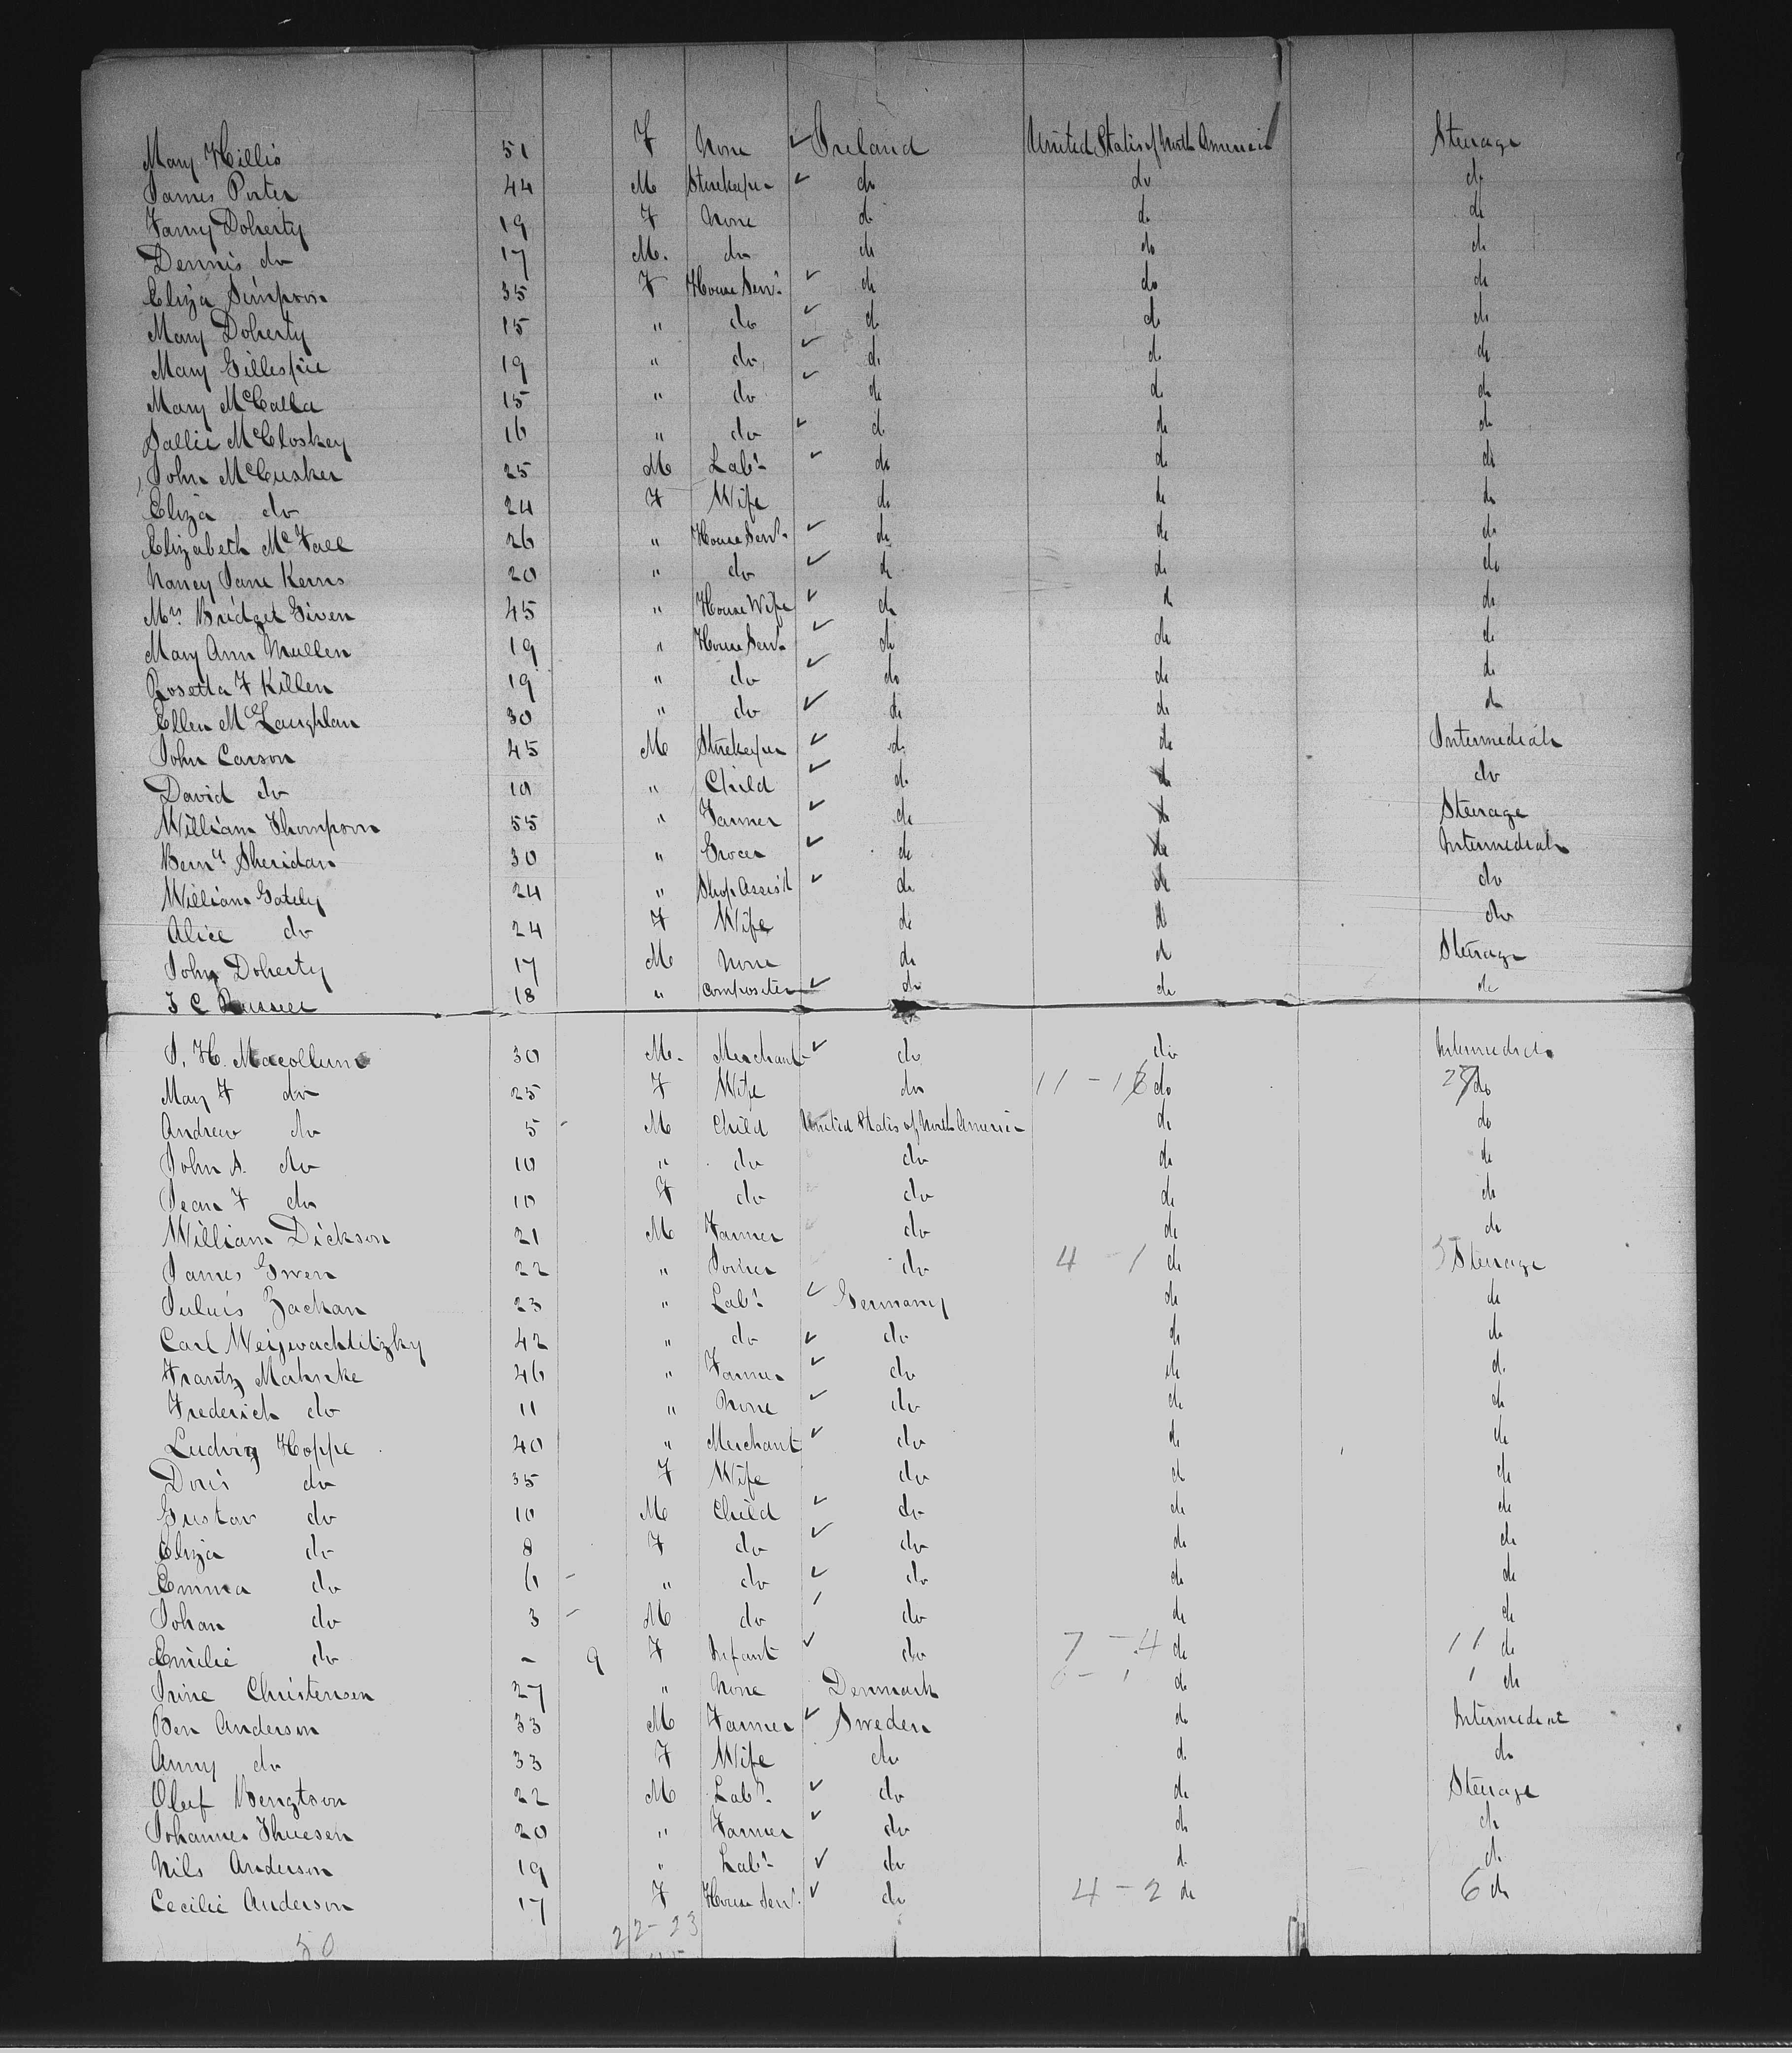 Mary Hillis 51 F None ✓ Ireland United States of North America Steerage
James Porter 44 M Storekeeper ✓ do do do
Fanny Doherty 19 F None do do do
Dennis do 17 M. do do do do
Eliza Simpson 35 F House Servt ✓ do do do
Mary Doherty 15 " do ✓ do do do
Mary Gillespie 19 " do ✓ do do do
Mary McCalla 15 " do ✓ do do do
Sallie McCloskey 16 " do ✓ do do do
John McCusker 25 M Labr ✓ do do do
Eliza do 24 F Wife do do do
Elizabeth McFall 26 " House Servt ✓ do do do
Nancy Jane Kerns 20 " do ✓ do do do
Mrs Bridget Given 45 " House Wife ✓ do do do
Mary Ann Mullen 19 " House Servt ✓ do do do
Rosetta F Killen 19 " do ✓ do do do
Ellen McLaughlan 30 " do ✓ do do do
John Carson 45 M Storekeeper ✓ do do Intermediate
David do 10 " Child ✓ do do do
William Thompson 55 " Farmer ✓ do do Steerage
Bernd Sheridan 30 " Grocer ✓ do do Intermediate
William Gately 24 " Shop Assist ✓ do do do
Alice do 24 F Wife do do do
John Doherty 17 M None do do Steerage
C Russell 18 " Compositer ✓ do do do
J. H. Macollum 30 M. Merchant ✓ do do Intermediate
Mary F do 25 F Wife do 11 - do do
Andrew do 5 - M Child United States of North America do do
John A. do 10 " do do do do
Jean F do 10 F do do do do
William Dickson 21 M Farmer do do do
James Gwen 22 " do 4 - 1 do Steerage
Julius Zackan 23 " Labr ✓ Germany do do
Carl Weijwachlitzky 42 " do ✓ do do do
Frantz Mahnke 46 " Farmer ✓ do do do
Frederich do 11 " None ✓ do do do
Ludwig Hoppe 40 " Merchant ✓ do do do
Doris do 35 F Wife do do do
Gustav do 10 M Child ✓ do do do
Eliza do 8 F do ✓ do do do
Emma do 6 - " do ✓ do do do
Johan do 3 - M do ✓ do do do
Emilie do - 9 F Infant ✓ do 7 - 4 do 11 do
Irine Christensen 27 " None Denmark do 1 do
Ben Anderson 33 M Farmer ✓ Sweden do Intermediate
Anny do 33 F Wife do do do
Oluf Bengtson 22 M Labr ✓ do do Steerage
Johannes Thuesen 20 " Farmer ✓ do do do
Nils Anderson 19 " Labr ✓ do do do
Cecilie Anderson 17 F House Servt ✓ do 4 - 2 do 6 do
50 22 - 23